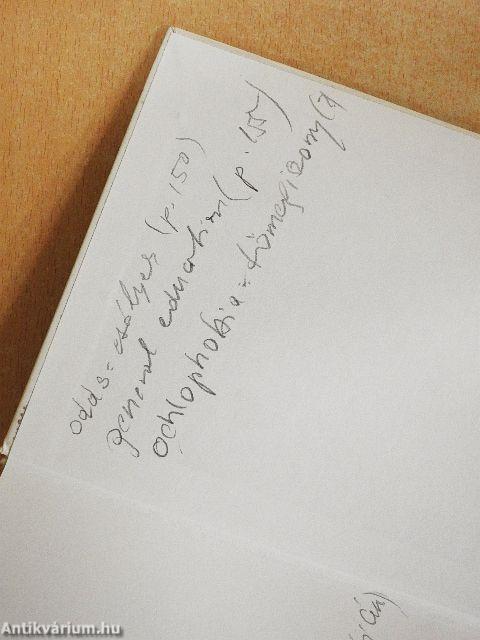 odds = esélyes (p. 150)
general education (p. 155)
ochlophobia = tömegiszony (
ián)
Antikvárium.hu